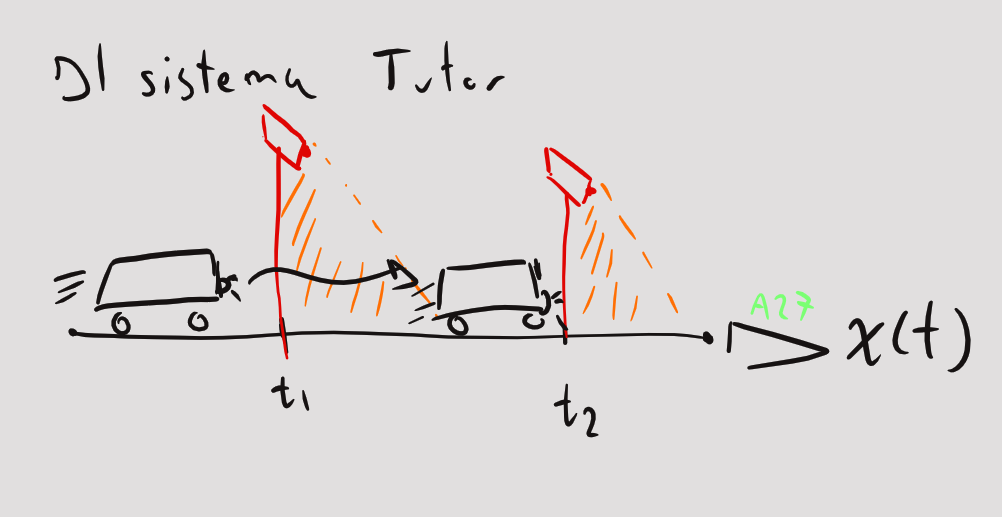 DI sistema Tutor
A27
x(t)
t1
t2